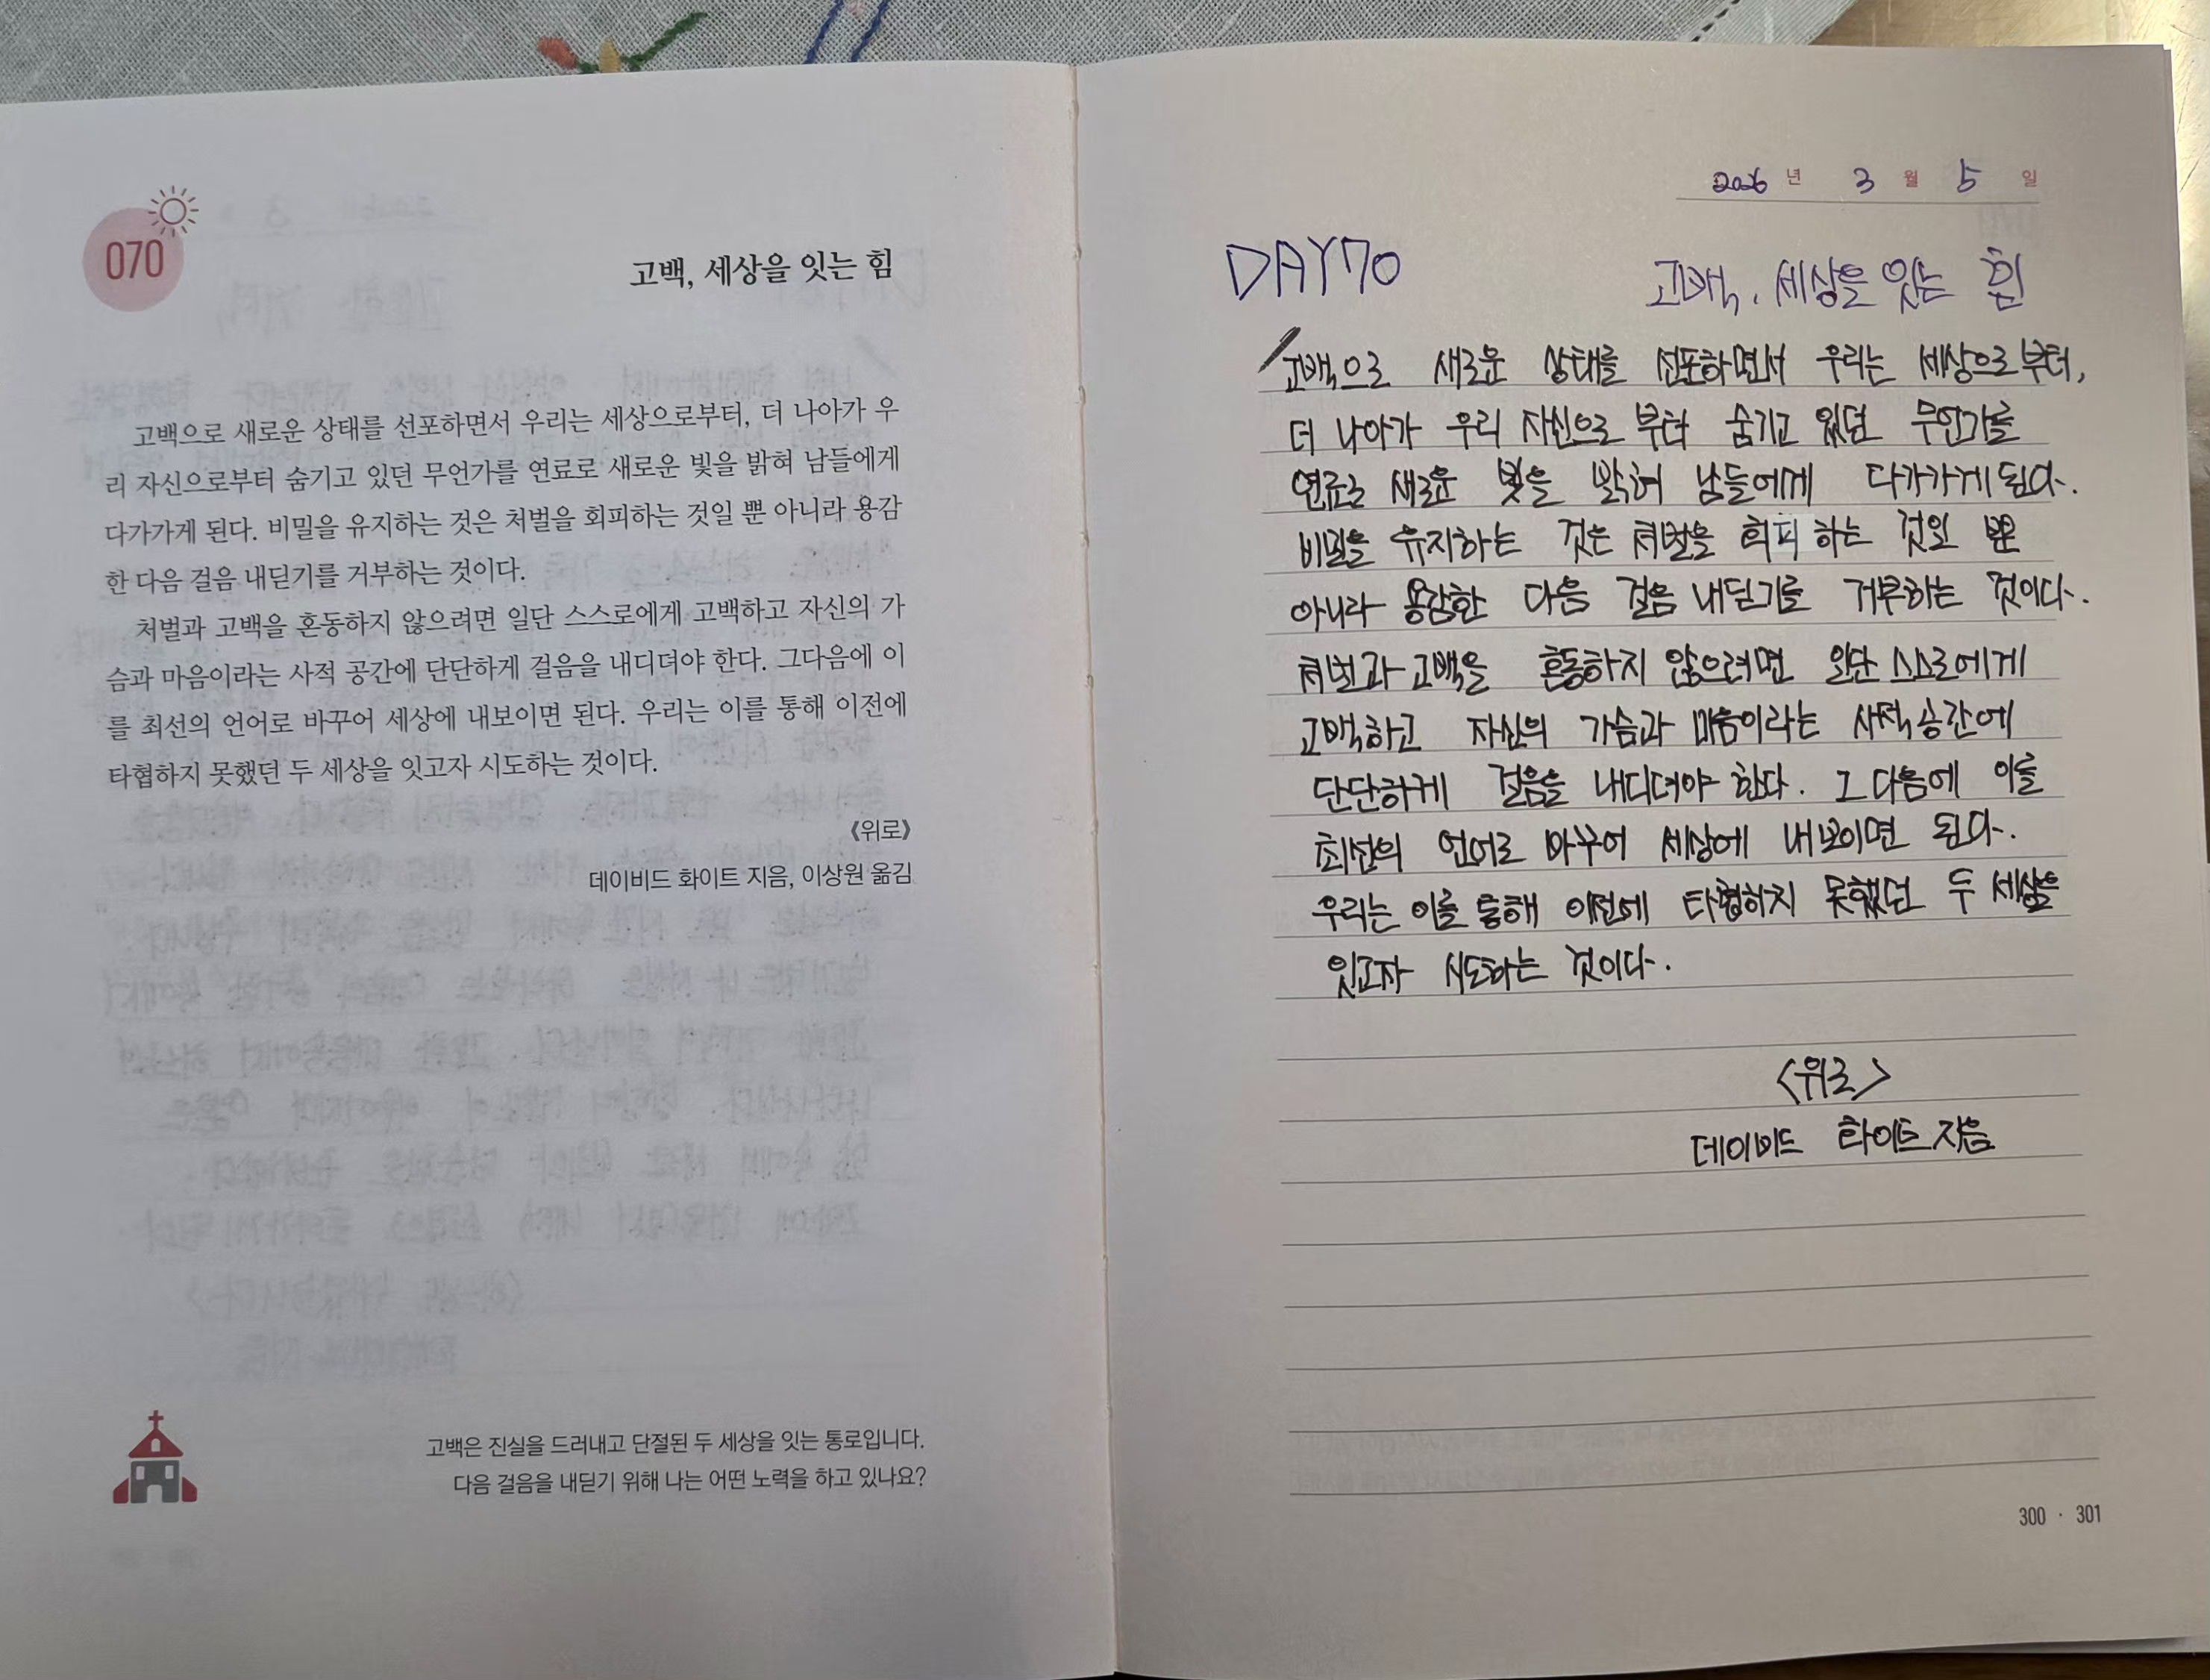 070
고백, 세상을 잇는 힘
고백으로 새로운 상태를 선포하면서 우리는 세상으로부터, 더 나아가 우
리 자신으로부터 숨기고 있던 무언가를 연료로 새로운 빛을 밝혀 남들에게
다가가게 된다. 비밀을 유지하는 것은 처벌을 회피하는 것일 뿐 아니라 용감
한 다음 걸음 내딛기를 거부하는 것이다.
처벌과 고백을 혼동하지 않으려면 일단 스스로에게 고백하고 자신의 가
슴과 마음이라는 사적 공간에 단단하게 걸음을 내디뎌야 한다. 그다음에 이
를 최선의 언어로 바꾸어 세상에 내보이면 된다. 우리는 이를 통해 이전에
타협하지 못했던 두 세상을 잇고자 시도하는 것이다.
《위로》
데이비드 화이트 지음, 이상원 옮김
고백은 진실을 드러내고 단절된 두 세상을 잇는 통로입니다.
다음 걸음을 내딛기 위해 나는 어떤 노력을 하고 있나요?
2026 년 3 월 5 일
DAY70
고백, 세상을 잇는 힘
고백으로 새로운 상태를 선포하면서 우리는 세상으로부터,
더 나아가 우리 자신으로 부터 숨기고 있던 무언가를
연료로 새로운 빛을 밝혀 남들에게 다가가게 된다.
비밀을 유지하는 것은 처벌을 회피하는 것일 뿐
아니라 용감한 다음 걸음 내딛기를 거부하는 것이다.
처벌과 고백을 혼동하지 않으려면 일단 스스로에게
고백하고 자신의 가슴과 마음이라는 사적 공간에
단단하게 걸음을 내디뎌야 한다. 그 다음에 이를
최선의 언어로 바꾸어 세상에 내보이면 된다.
우리는 이를 통해 이전에 타협하지 못했던 두 세상을
잇고자 시도하는 것이다.
<위로>
데이비드 화이트 지음
300 · 301